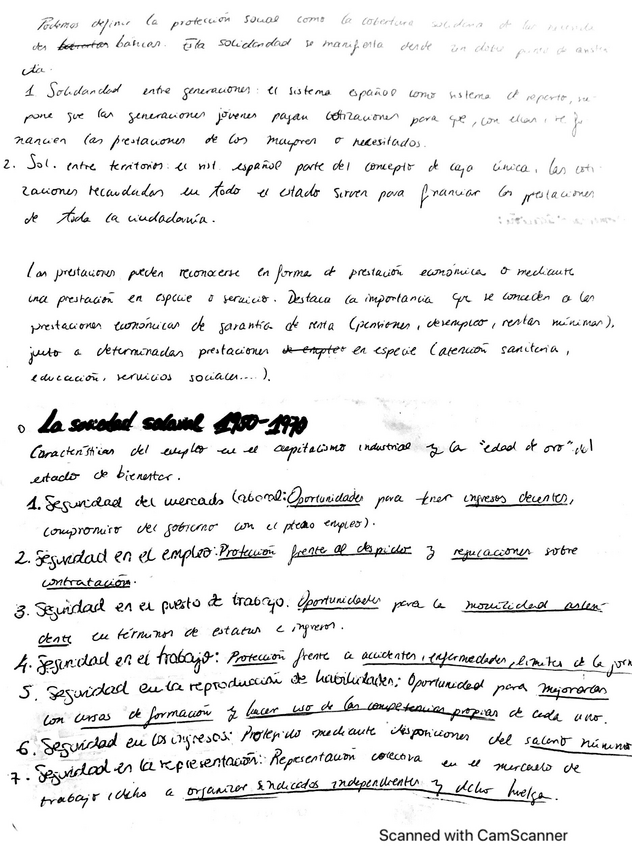 Podemos definir la protección social como la cobertura solidaria de las necesida
des básicas. Esta solidaridad se manifiesta desde un doble punto de
vista.
1 Solidaridad entre generaciones: el sistema español como sistema de reparto, su
pone que las generaciones jóvenes pagan cotizaciones para que, con ellas, se fi
nancien las prestaciones de los mayores o necesitados.
2. Sol. entre territorios: el sist. español parte del concepto de caja única, las coti
zaciones recaudadas en todo el estado sirven para financiar las prestaciones
de toda la ciudadanía.
Las prestaciones pueden reconocerse en forma de prestación económica o mediante
una prestación en especie o servicio. Destaca la importancia que se conceden a las
prestaciones económicas de garantía de renta (pensiones, desempleo, rentas mínimas),
justo a determinadas prestaciones en especie (atención sanitaria,
educación, servicios sociales....).
La sociedad salarial 1950-1970
Características del empleo en el capitalismo industrial y la "edad de oro" del
estado de bienestar.
1. Seguridad del mercado laboral: Oportunidades para tener ingresos decentes,
compromiso del gobierno con el pleno empleo).
2. Seguridad en el empleo: Protección frente al despido y regulaciones sobre
contratación.
3. Seguridad en el puesto de trabajo. Oportunidades para la movilidad ascen
dente en términos de estatus e ingresos.
4. Seguridad en el trabajo: Protección frente a accidentes, enfermedades, límites de la jorn
5. Seguridad en la reproducción de habilidades: Oportunidad para mejorarlas
con cursos de formación y hacer uso de las competencias propias de cada uno.
6. Seguridad en los ingresos: Protegido mediante disposiciones del salario mínimo
7. Seguridad en la representación: Representación colectiva en el mercado de
trabajo, dcho a organizar sindicatos independientes y dcho huelga.
Scanned with CamScanner